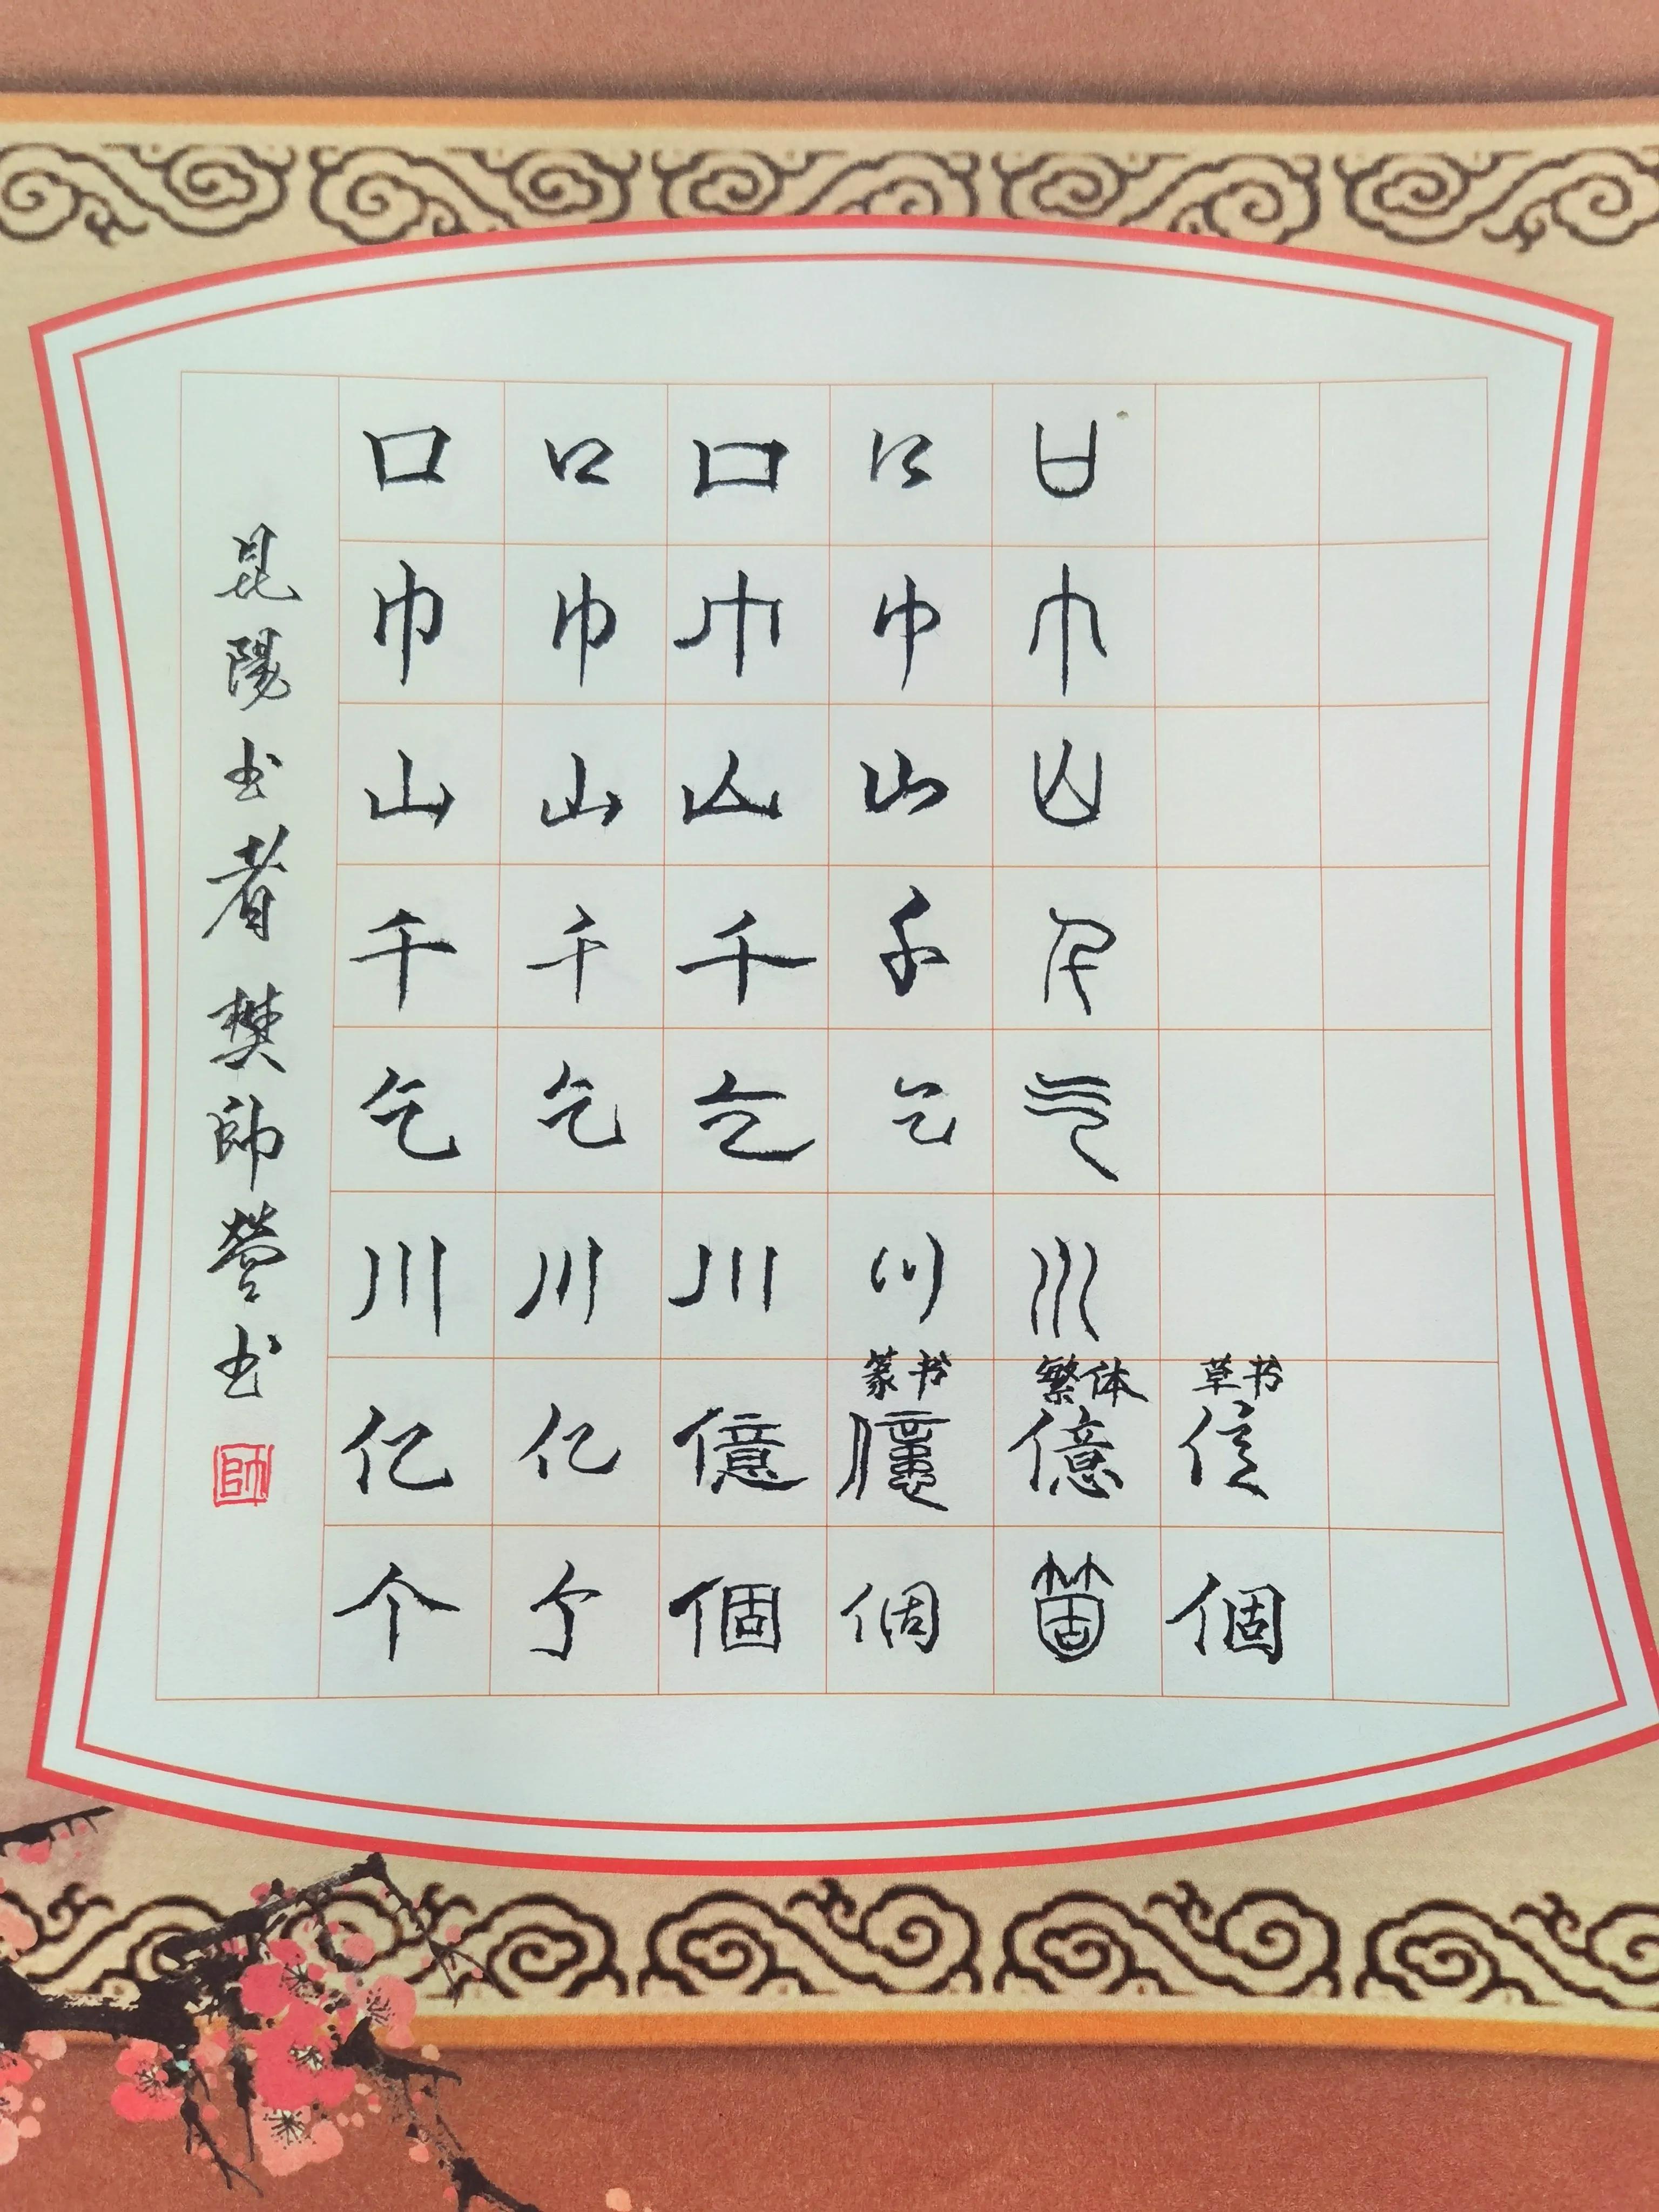 口 口 口 口 口
巾 巾 巾 巾 巾
山 山 山 山 山
千 千 千 千 千
乞 乞 乞 乞 气
川 川 川 川 川
篆书 繁体 草书
亿 亿 億 億 億 億
个 个 個 個 箇 個
昆陽书者樊帥营书
帥